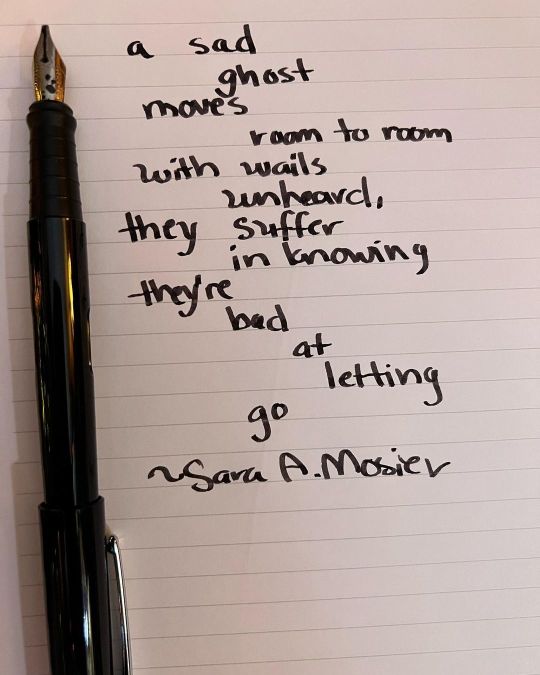 a sad
ghost
moves
room to room
with wails
unheard,
they suffer
in knowing
they're
bad
at
letting
go
~Sara A. Mosier